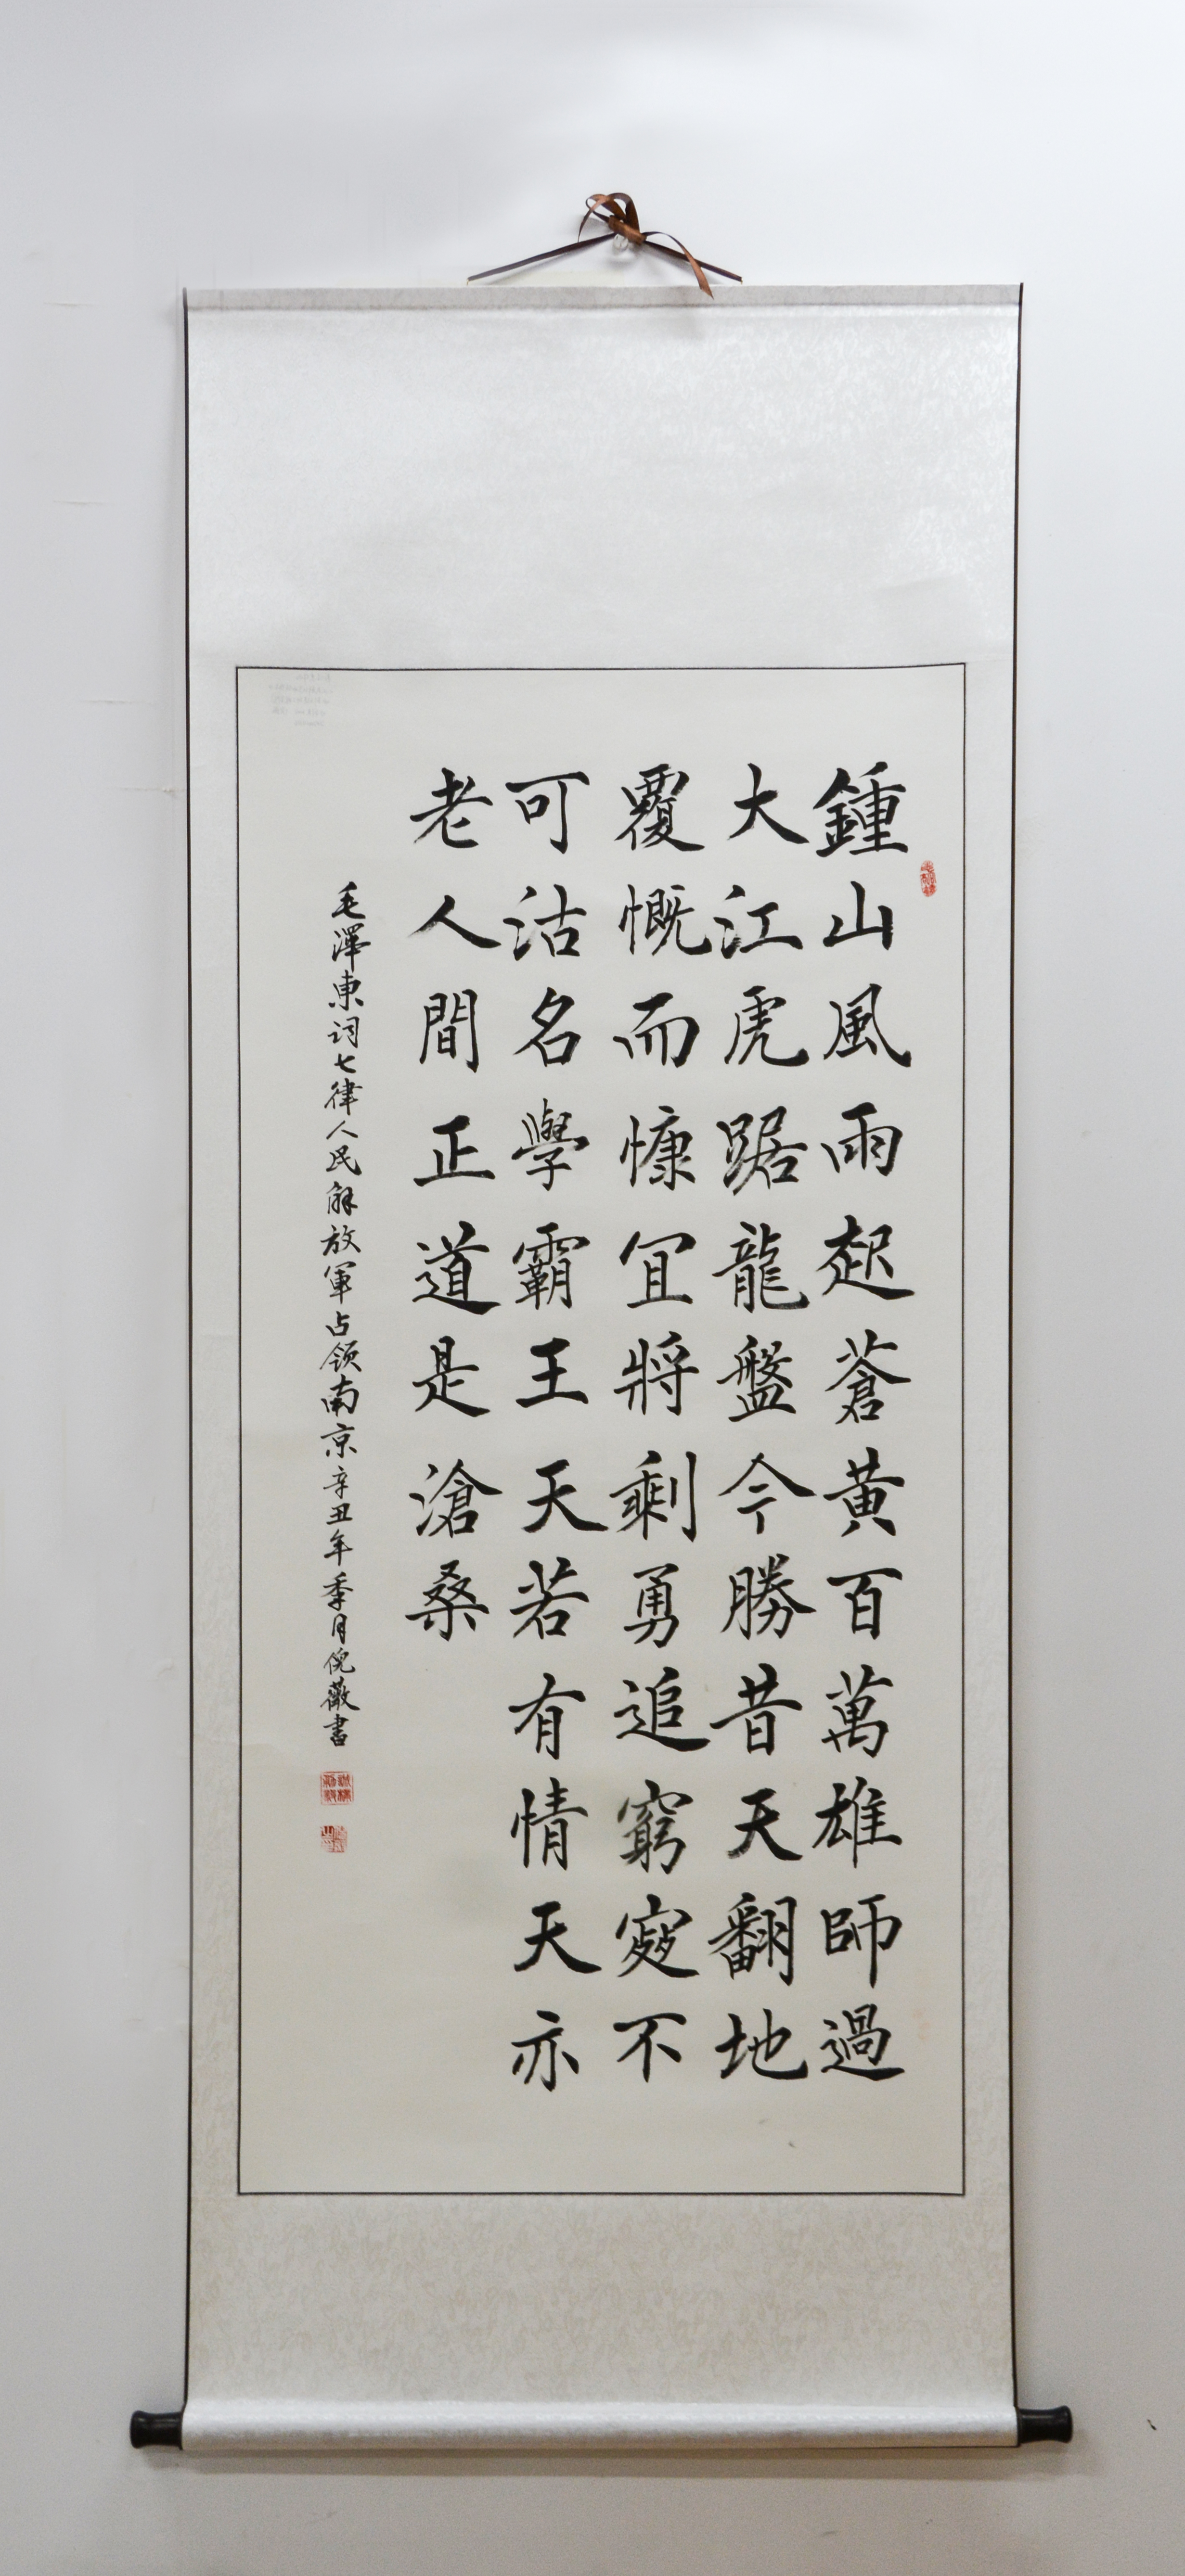 鍾山風雨起蒼黄百萬雄師過
大江虎踞龍盤今勝昔天翻地
覆慨而慷宜將剩勇追窮寇不
可沽名學霸王天若有情天亦
老人間正道是滄桑
毛澤東词七律人民解放軍占领南京辛丑年季月倪薇書